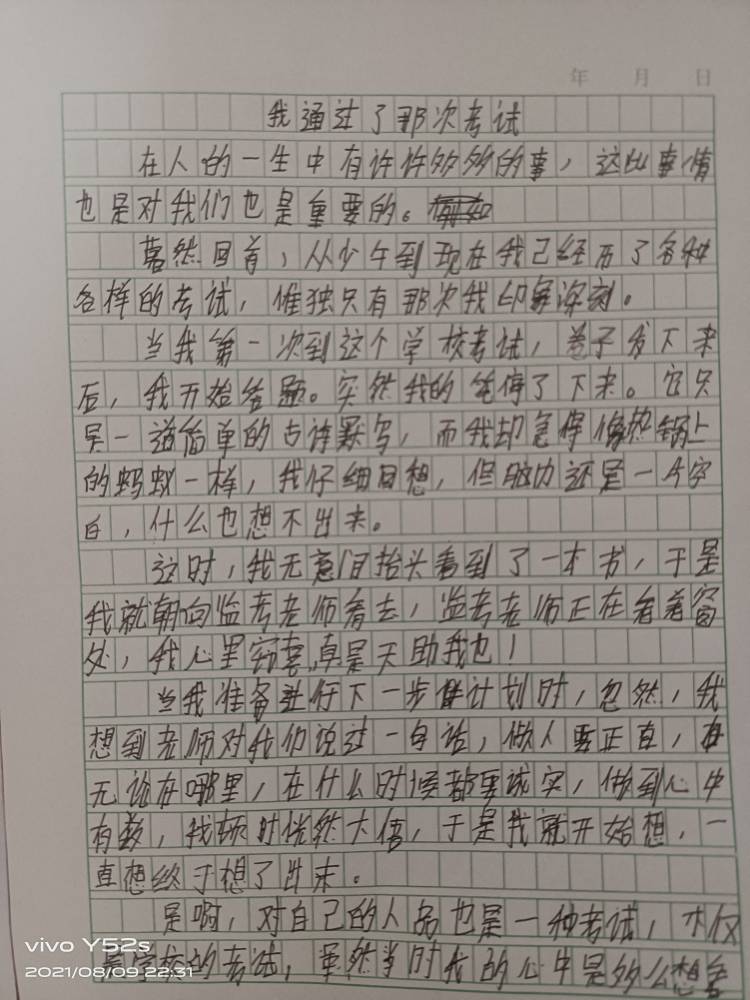 年 月 日
我通过了那次考试
在人的一生中有许许多多的事，这些事情
也是对我们也是重要的。
蓦然回首，从少年到现在我已经历了各种
各样的考试，惟独只有那次我印象深刻。
当我第一次到这个学校考试，卷子发下来
后，我开始答题。突然我的笔停了下来。它只
是一道简单的古诗默写，而我却急得像热锅上
的蚂蚁一样，我仔细回想，但脑力还是一片空
白，什么也想不出来。
这时，我无意间抬头看到了一本书，于是
我就朝向监考老师看去，监考老师正在看着窗
处，我心里窃喜，真是天助我也！
当我准备进行下一步计划时，忽然，我
想到老师对我们说过一句话，做人要正直，
无论在哪里，在什么时候都要诚实，做到心中
有数，我顿时恍然大悟，于是我就开始想，一
直想终于想了出来。
是啊，对自己的人品也是一种考试，不仅
是学校的考试，虽然当时我的心中是多么想看
vivo Y52s
2021/08/09 22:31